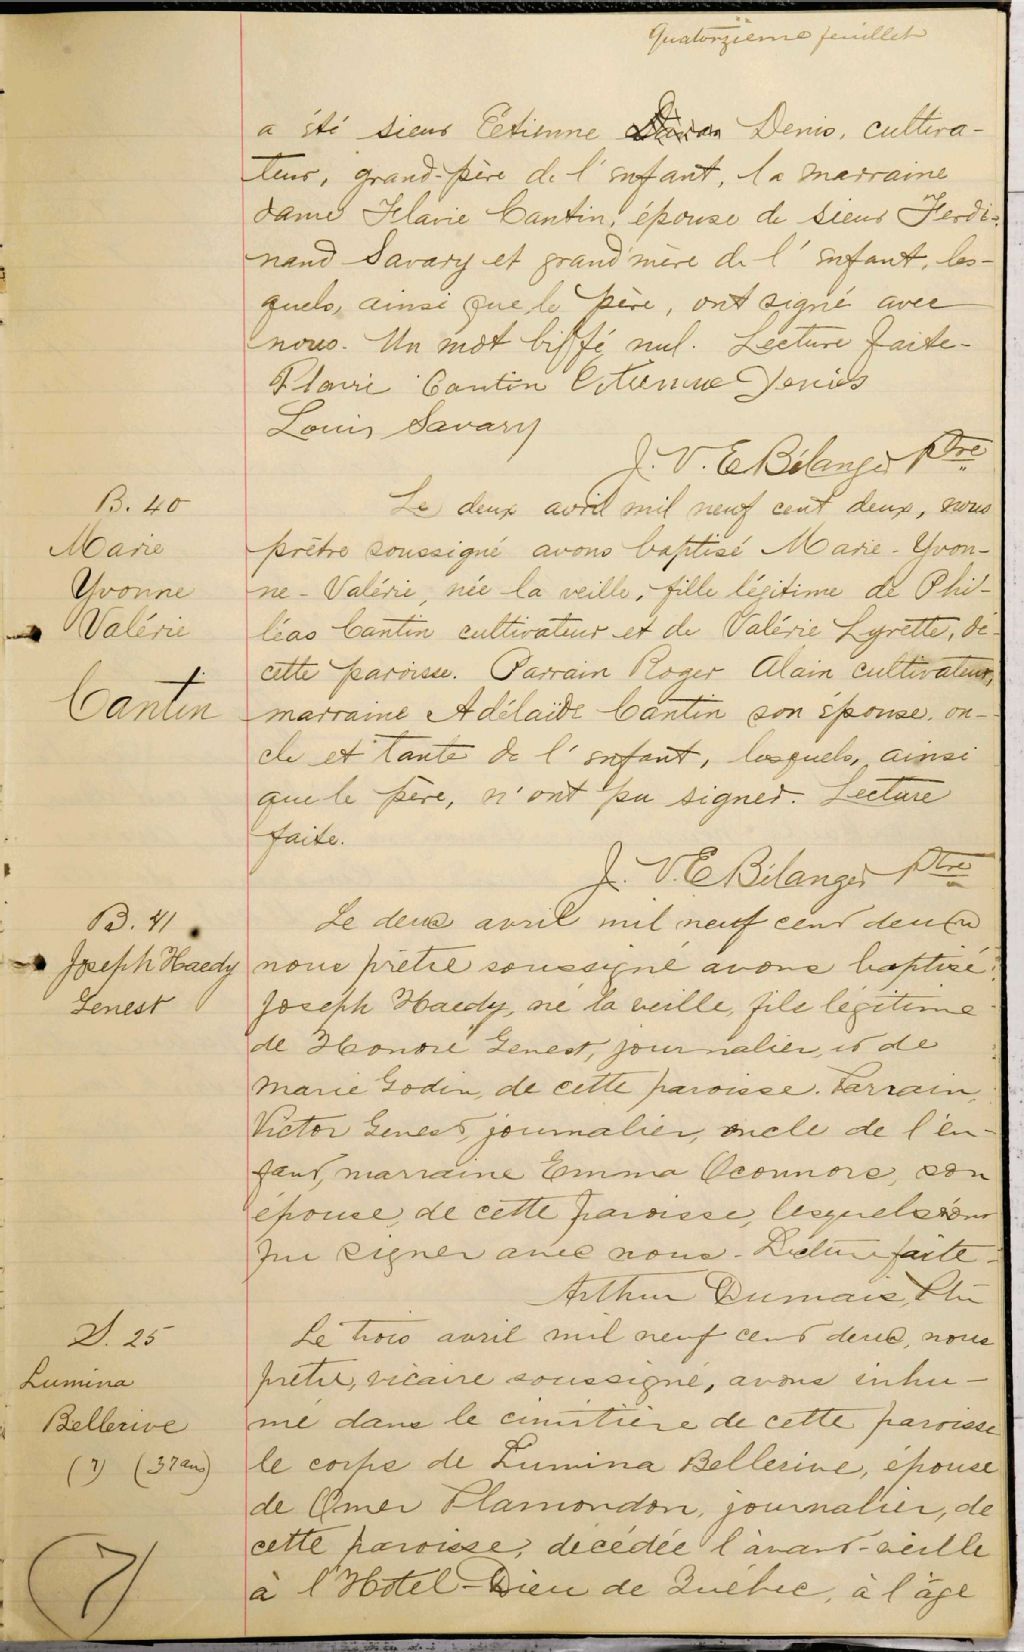 Quatorzième feuillet
a été sieur Etienne Denis, cultiva-
teur, grand-père de l'enfant, la marraine
dame Flavie Cantin, épouse de sieur Ferdi-
nand Savary et grand'mère de l'enfant, les-
quels, ainsi que le père, ont signé avec
nous. Un mot biffé nul. Lecture faite-
Flavie Cantin Etienne Denis
Louis Savary
J. V. E Bélanger Ptre
B. 40
Marie
Yvonne
Valérie
Cantin
Le deux avril mil neuf cent deux, nous
prêtre soussigné avons baptisé Marie-Yvon-
ne-Valérie, née la veille, fille légitime de Phi-
léas Cantin cultivateur et de Valérie Lyrette, de
cette paroisse. Parrain Roger Alain cultivateur,
marraine Adélaïde Cantin son épouse, on-
cle et tante de l'enfant, lesquels, ainsi
que le père, n'ont pu signer. Lecture
faite.
J. V. E Bélanger Ptre
B. 41
Joseph Haedy
Genest
Le deux avril mil neuf cent deux
nous prêtre soussigné avons baptisé
Joseph Haedy, né la veille, fils légitime
de Honoré Genest, journalier, et de
Marie Godin, de cette paroisse. Parrain,
Victor Genest, journalier, oncle de l'en-
fant, marraine Emma Oconnors, son
épouse, de cette paroisse, lesquels
pu signer avec nous. Lecture faite-
Arthur Dumais, Ptre
S. 25
Lumina
Bellerive
(7) (37 ans)
7
Le trois avril mil neuf cent deux, nous
prêtre, vicaire soussigné, avons inhu-
mé dans le cimitière de cette paroisse
le corps de Lumina Bellerive, épouse
de Omer Plamondon, journalier, de
cette paroisse, décédée l'avant-veille
à l'Hotel-Dieu de Québec, à l'âge